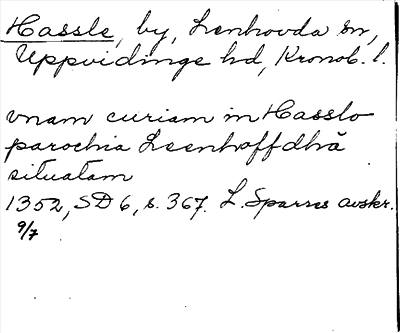 Hassle, by, Lenhovda sn,
Uppvidinge hd, Kronob. l.
vnam curiam in Hasslo
parochia Leenhoffdhä
situatam
1352, SD 6, s. 367. L. Sparres avskr.
9/7